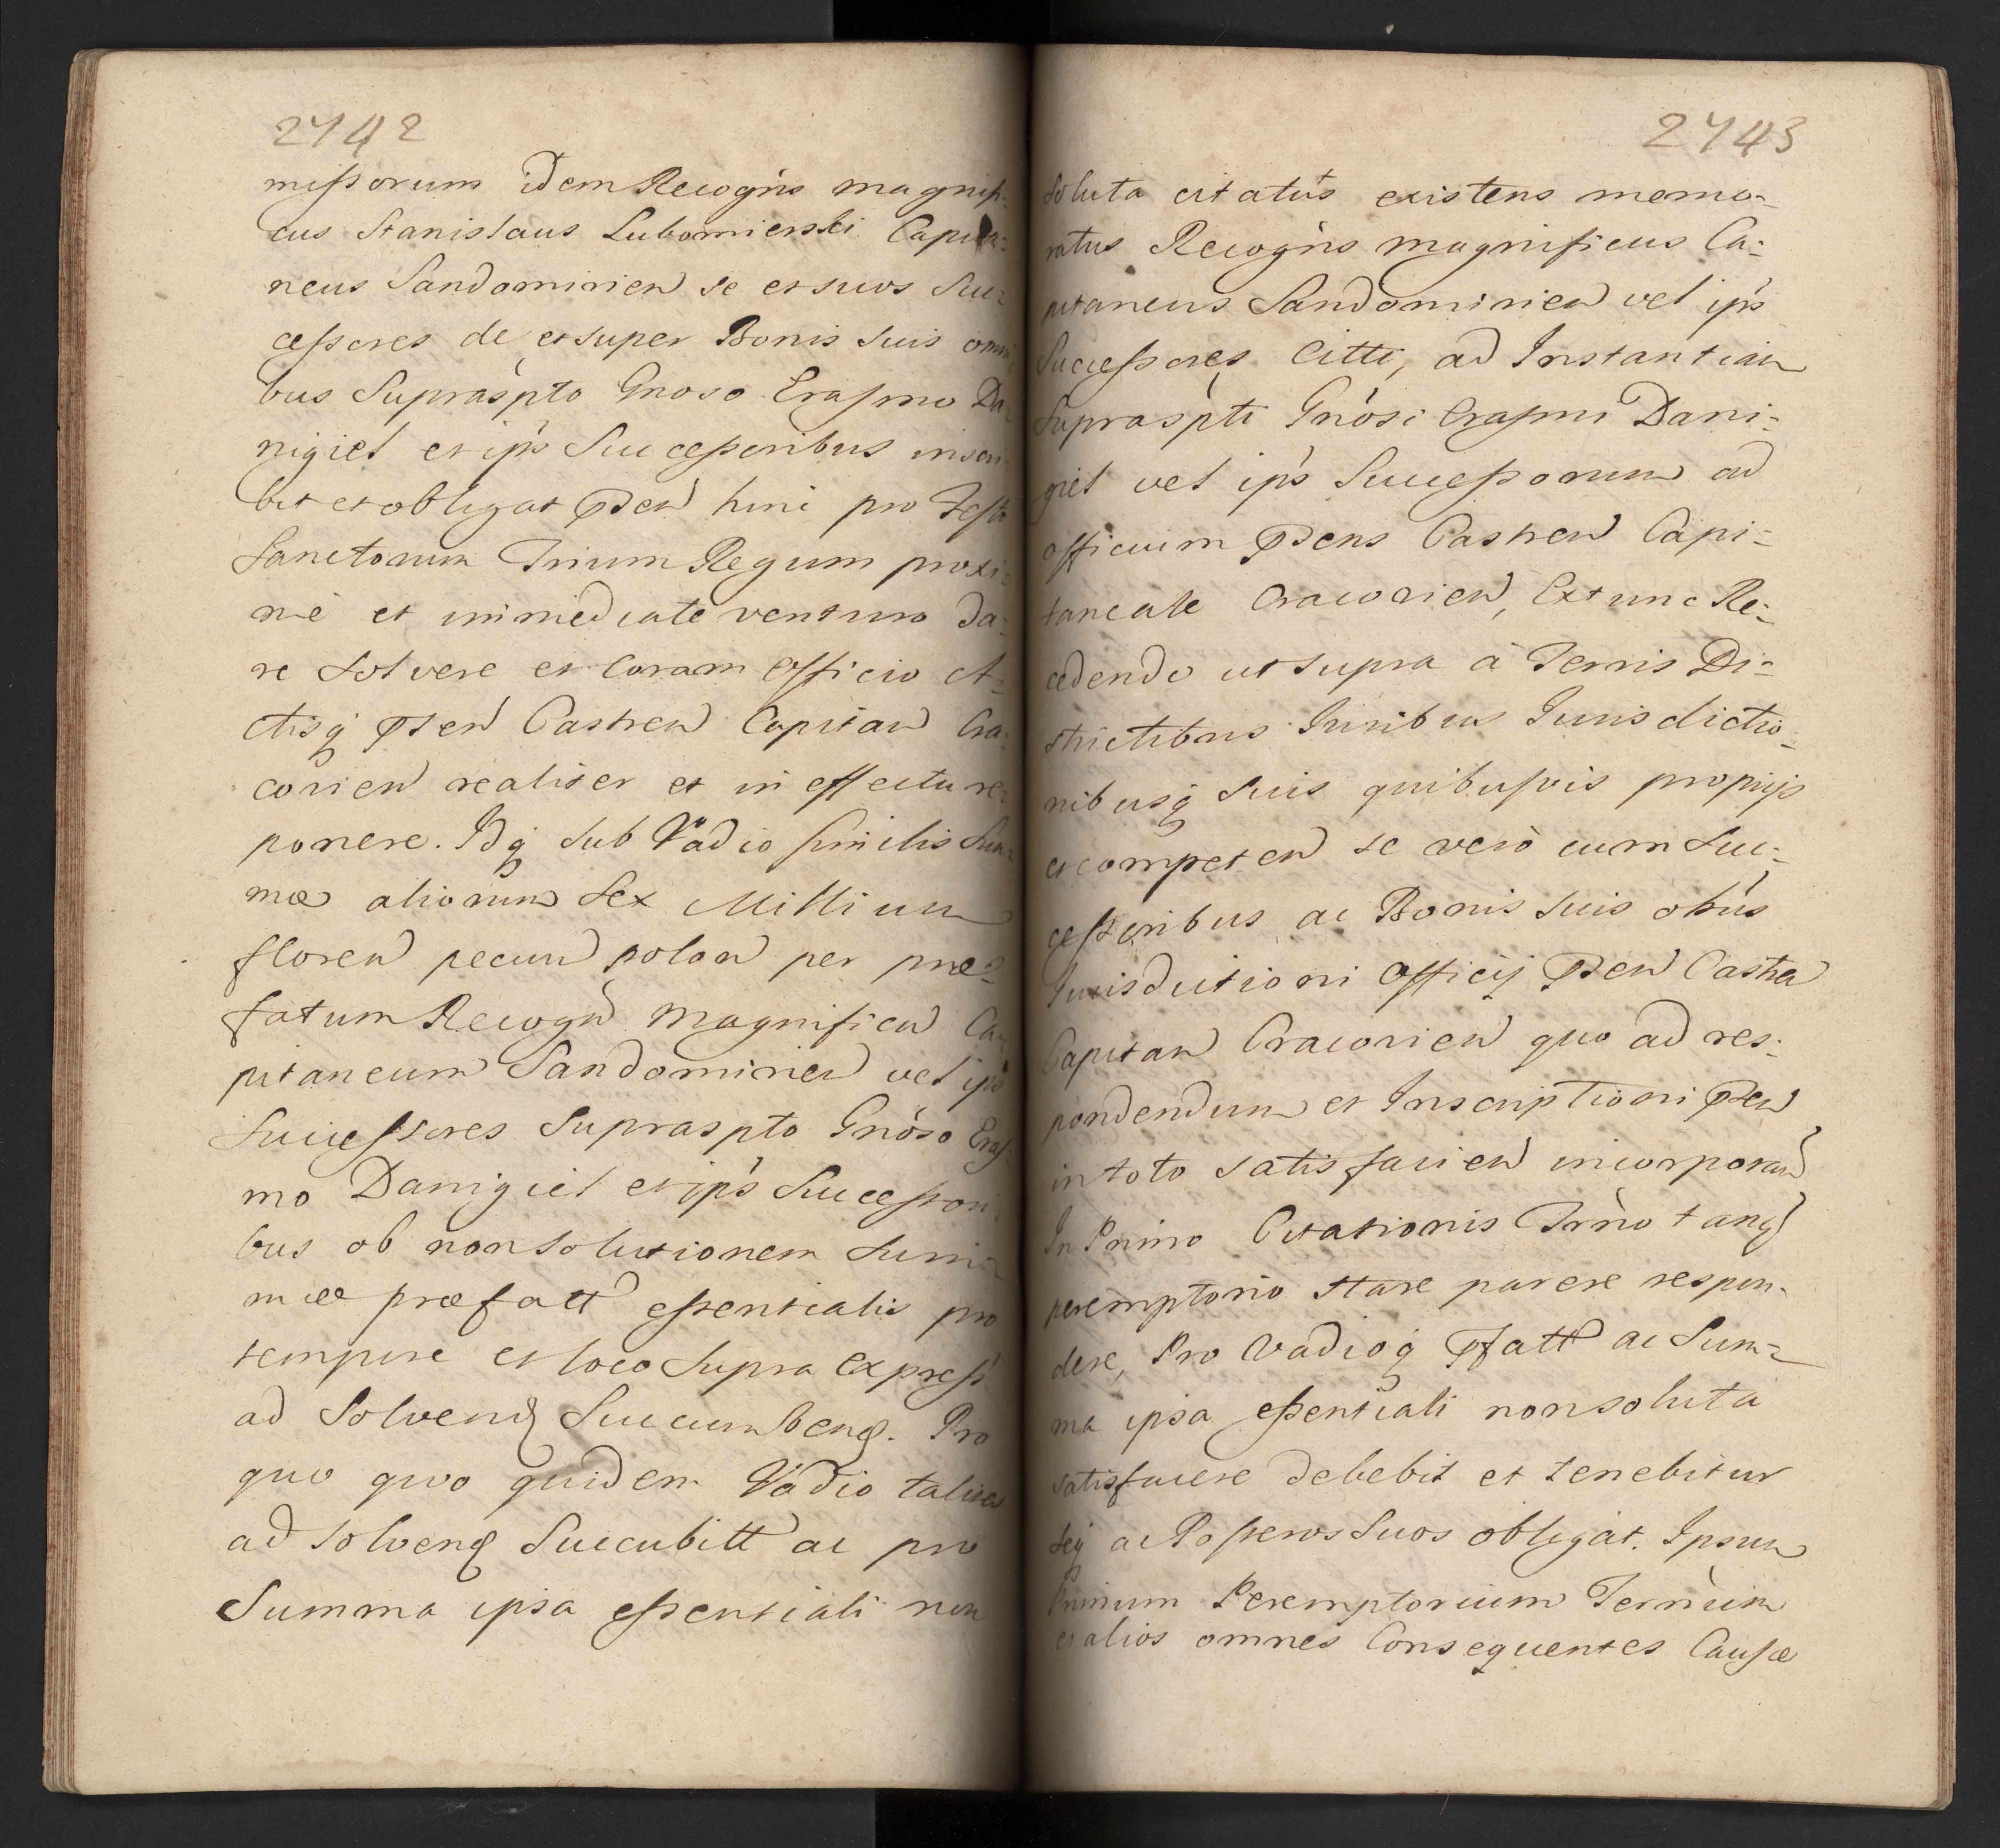 2742
missorum idem Recogńs magnifi-
cus Stanislaus Lubomierski Capita-
neus Sandomirien se et suos Suc-
cessores de et super Bonis suis omni
bus Supraspto Gnoso Erasmo Da-
nigiel et ips Successoribus inscri-
bit et obligat Psen hinc pro Festo
Sanctorum Trium Regum proxi-
me et immediate venturo da-
re solvere et Coram Officio A-
ctisq Psen Castren Capitan Cra-
covien realiter et in effectu re-
ponere. Idq sub Vadio similis Sum-
mæ aliorum Sex Millium
floren pecun polon per præ-
fatum Recogn Magnificu Ca-
pitaneum Sandomirien vel ips
Successores Supraspto Gnóso Eras-
mo Danigiel et ips Successori-
bus ob non solutionem Sum-
mæ præfatt essentialis pro
tempore et loco supra express
ad Solvend Succumbend. Pro
quo quo quidem Vadio taliter
ad solvend Succubitt ac pro
Summa ipsa essentiali non
2743
soluta citatus existens memo-
ratus Recogńs Magnificus Ca-
pitaneus Sandomirien vel ips
Successores Citti, ad Instantiam
Supraspti Gnósi Erasmi Dani-
giel vel ips Successorum ad
officium Psens Castren Capi-
taneale Cracovien, Extunc Re-
cedendo ut supra à Terris Di-
strictibus Iuribus Iurisdictio-
nibusq Suis quibusvis proprijs
et competen se verò cum Suc-
cessoribus ac Bonis suis obus
Iurisdictioni Officij Psen Castren
Capitan Cracovien quo ad res-
pondendum et Inscriptioni Psen
in toto satisfacien incorporand
In Primo Citationis Trno tanq
peremptorio stare parere respon-
dere, Pro Vadioq Pfatt ac Sum-
ma ipsa essentiali non soluta
satisfacere debebit et tenebitur
seq ac Posteros Suos obligat. Ipsum
Primum Peremptorium Ternùm
et alios omnes Consequentes Causæ